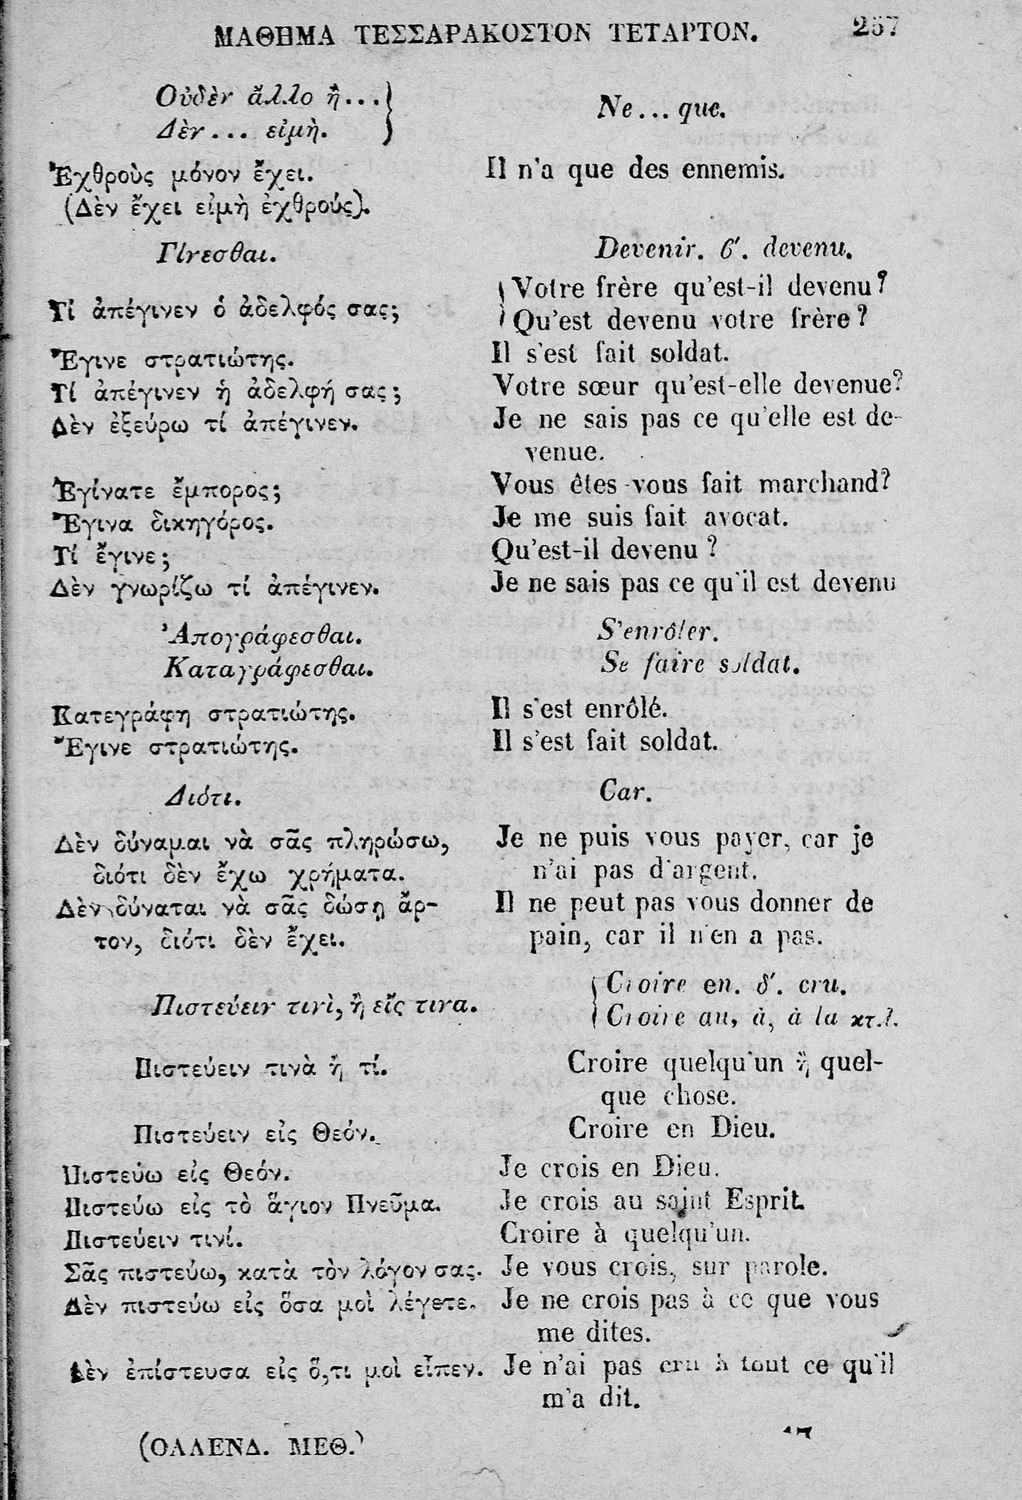 ΜΑΘΗΜΑ ΤΕΣΣΑΡΑΚΟΣΤΟΝ ΤΕΤΑΡΤΟΝ. 257
Οὐδὲν ἄλλο ἢ...
Δὲν... εἰμὴ.
Ne... que.
Ἐχθροὺς μόνον ἔχει. Il n'a que des ennemis.
(Δὲν ἔχει εἰμὴ ἐχθρούς).
Γίνεσθαι. Devenir. 6'. devenu.
Τί ἀπέγινεν ὁ ἀδελφός σας; Votre frère qu'est-il devenu?
Qu'est devenu votre frère?
Ἔγινε στρατιώτης. Il s'est fait soldat.
Τί ἀπέγινεν ἡ ἀδελφή σας; Votre sœur qu'est-elle devenue?
Δὲν ἐξεύρω τί ἀπέγινεν. Je ne sais pas ce qu'elle est de-
venue.
Ἐγίνατε ἔμπορος; Vous êtes-vous fait marchand?
Ἔγινα δικηγόρος. Je me suis fait avocat.
Τί ἔγινε; Qu'est-il devenu?
Δὲν γνωρίζω τί ἀπέγινεν. Je ne sais pas ce qu'il est devenu
Ἀπογράφεσθαι. S'enrôler.
Καταγράφεσθαι. Se faire soldat.
Κατεγράφη στρατιώτης. Il s'est enrôlé.
Ἔγινε στρατιώτης. Il s'est fait soldat.
Διότι. Car.
Δὲν δύναμαι νὰ σᾶς πληρώσω, Je ne puis vous payer, car je
διότι δὲν ἔχω χρήματα. n'ai pas d'argent.
Δὲν δύναται νὰ σᾶς δώσῃ ἄρ- Il ne peut pas vous donner de
τον, διότι δὲν ἔχει. pain, car il n'en a pas.
Πιστεύειν τινὶ, ἢ εἴς τινα. Croire en. δ'. cru.
Croire au, à, à la κτ.λ.
Πιστεύειν τινὰ ἤ τί. Croire quelqu'un ἢ quel-
que chose.
Πιστεύειν εἰς Θεόν. Croire en Dieu.
Πιστεύω εἰς Θεόν. Je crois en Dieu.
Πιστεύω εἰς τὸ ἅγιον Πνεῦμα. Je crois au saint Esprit.
Πιστεύειν τινί. Croire à quelqu'un.
Σᾶς πιστεύω, κατὰ τὸν λόγον σας. Je vous crois, sur parole.
Δὲν πιστεύω εἰς ὅσα μοὶ λέγετε. Je ne crois pas à ce que vous
me dites.
Δὲν ἐπίστευσα εἰς ὅ,τι μοὶ εἶπεν. Je n'ai pas cru à tout ce qu'il
m'a dit.
(ΟΛΛΕΝΔ. ΜΕΘ.)